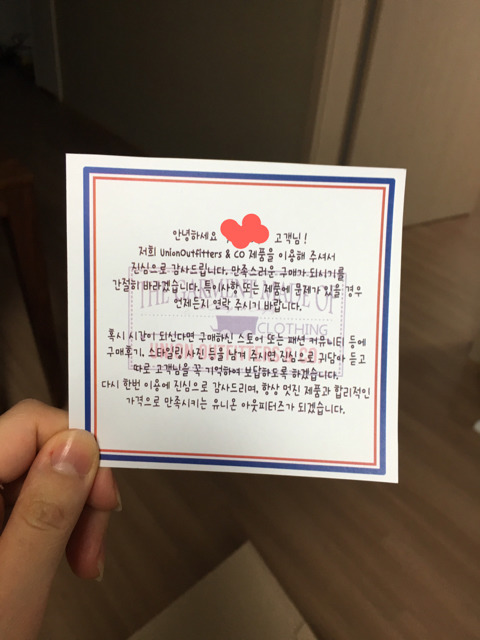 안녕하세요 고객님!
저희 UnionOutfitters & CO 제품을 이용해 주셔서
진심으로 감사드립니다. 만족스러운 구매가 되시기를
간절히 바라겠습니다. 특이사항 또는 제품에 문제가 있을 경우
언제든지 연락 주시기 바랍니다.
CLOTHING
혹시 시간이 되신다면 구매하신 스토어 또는 패션 커뮤니티 등에
구매후기, 스타일링 사진 등을 남겨 주시면 진심으로 귀담아 듣고
UNION OUTFITTERS & CO.
따로 고객님을 꼭 기억하여 보답하도록 하겠습니다.
다시 한번 이용에 진심으로 감사드리며, 항상 멋진 제품과 합리적인
가격으로 만족시키는 유니온 아웃피터즈가 되겠습니다.